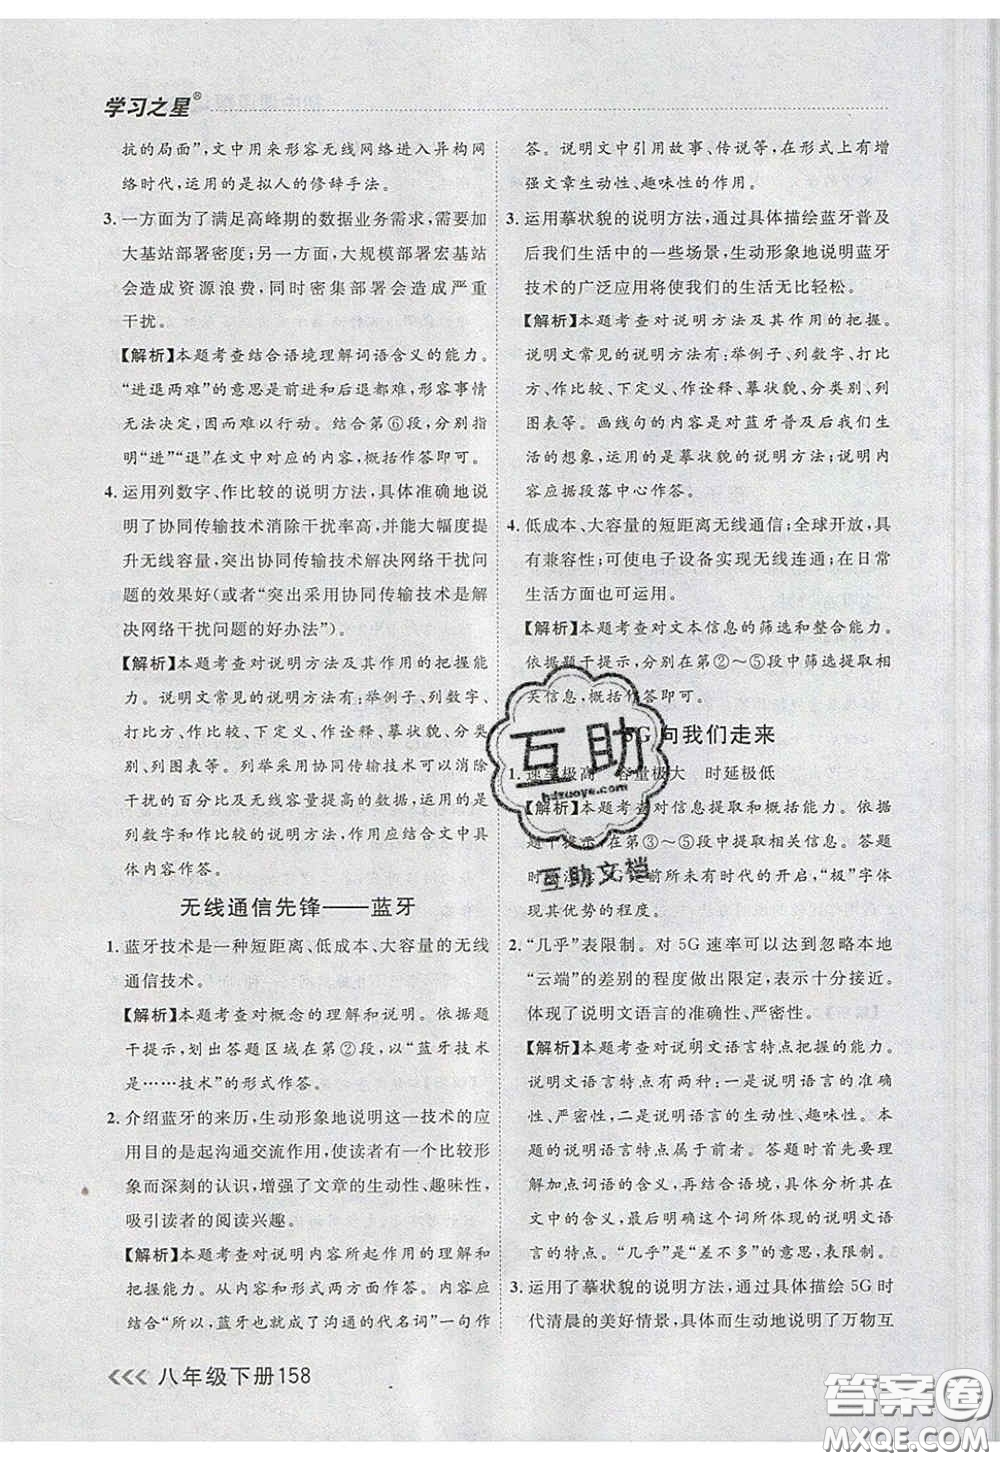 学习之星®
抗的局面”,文中用来形容无线网络进入异构网
络时代,运用的是拟人的修辞手法。
3. 一方面为了满足高峰期的数据业务需求,需要加
大基站部署密度;另一方面,大规模部署宏基站
会造成资源浪费,同时密集部署会造成严重
干扰。
【解析】本题考查结合语境理解词语含义的能力。
“进退两难”的意思是前进和后退都难,形容事情
无法决定,因而难以行动。结合第⑥段,分别指
明“进”“退”在文中对应的内容,概括作答即可。
4. 运用列数字、作比较的说明方法,具体准确地说
明了协同传输技术消除干扰率高,并能大幅度提
升无线容量,突出协同传输技术解决网络干扰问
题的效果好(或者“突出采用协同传输技术是解
决网络干扰问题的好办法”)。
【解析】本题考查对说明方法及其作用的把握能
力。说明文常见的说明方法有:举例子、列数字、
打比方、作比较、下定义、作诠释、摹状貌、分类
别、列图表等。列举采用协同传输技术可以消除
干扰的百分比及无线容量提高的数据,运用的是
列数字和作比较的说明方法,作用应结合文中具
体内容作答。
无线通信先锋——蓝牙
1. 蓝牙技术是一种短距离、低成本、大容量的无线
通信技术。
【解析】本题考查对概念的理解和说明。依据题
干提示,划出答题区域在第②段,以“蓝牙技术
是……技术”的形式作答。
2. 介绍蓝牙的来历,生动形象地说明这一技术的应
用目的是起沟通交流作用,使读者有一个比较形
象而深刻的认识,增强了文章的生动性、趣味性,
吸引读者的阅读兴趣。
【解析】本题考查对说明内容所起作用的理解和
把握能力。从内容和形式两方面作答。内容应
结合“所以,蓝牙就成了沟通的代名词”一句作
答。说明文中引用故事、传说等,在形式上有增
强文章生动性、趣味性的作用。
3. 运用摹状貌的说明方法,通过具体描绘蓝牙普及
后我们生活中的一些场景,生动形象地说明蓝牙
技术的广泛应用将使我们的生活无比轻松。
【解析】本题考查对说明方法及其作用的把握。
说明文常见的说明方法有:举例子、列数字、打比
方、作比较、下定义、作诠释、摹状貌、分类别、列
图表等。画线句的内容是对蓝牙普及后我们生
活的想象,运用的是摹状貌的说明方法,说明内
容应据段落中心作答。
4. 低成本、大容量的短距离无线通信;全球开放,具
有兼容性;可使电子设备实现无线连通;在日常
生活方面也可运用。
【解析】本题考查对文本信息的筛选和整合能力。
依据题干提示,分别在第②～⑤段中筛选提取相
关信息,概括作答即可。
5G向我们走来
1. 速率极高 容量极大 时延极低
【解析】本题考查对信息提取和概括能力。依据
题干提示,在第③～⑤段中提取相关信息。答题
时须注意5G是前所未有时代的开启,“极”字体
现其优势的程度。
2. “几乎”表限制。对5G速率可以达到忽略本地
“云端”的差别的程度做出限定,表示十分接近。
体现了说明文语言的准确性、严密性。
【解析】本题考查对说明文语言特点把握的能力。
说明文语言特点有两种:一是说明语言的准确
性、严密性,二是说明语言的生动性、趣味性。本
题的说明语言特点属于前者。答题时首先要理
解加点词语的意思,再结合语境,具体分析其在
文中的含义,最后阐明这个词所体现的说明文语
言的特点。“几乎”是“差不多”的意思,表限制。
3. 运用了摹状貌的说明方法,通过具体描绘5G时
代清晨的美好情景,具体而生动地说明了万物互
八年级下册158
互助
bdzuoye.com
互助文档
答案圈
MXQE.COM